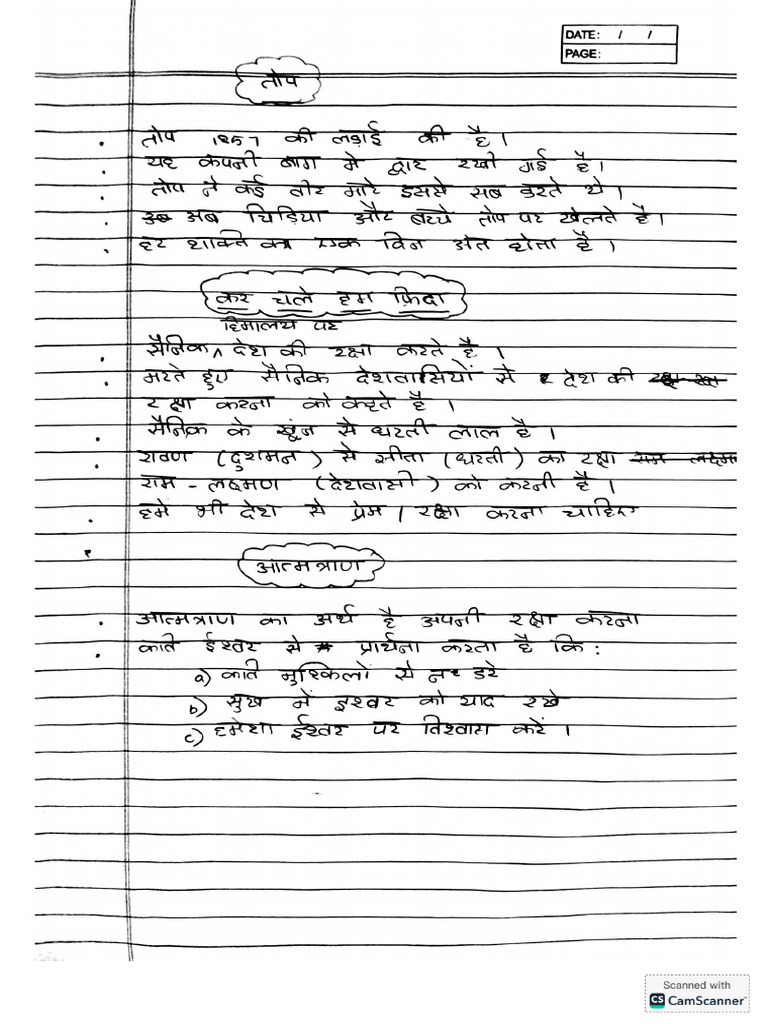 DATE: / /
PAGE:
तोप
तोप 1857 की लड़ाई की है।
यह कंपनी बाग मे द्वार रखी गई है।
तोप ने कई वीर मारे इससे सब डरते थे।
अब चिड़िया और बच्चे तोप पर खेलते है।
हर शक्ति का एक दिन अंत होता है।
कर चले हम फ़िदा
हिमालय पर
सैनिक ^ देश की रक्षा करते है।
मरते हुए सैनिक देशवासियों से देश की
रक्षा करना को कहते है।
सैनिक के खून से धरती लाल है।
रावण (दुशमन) से सीता (धरती) का रक्षा
राम - लक्ष्मण (देशवासी) को करनी है।
हमे भी देश से प्रेम / रक्षा करना चाहिए
आत्मत्राण
आत्मत्राण का अर्थ है अपनी रक्षा करना
कवि ईश्वर से प्रार्थना करता है कि:
a) कवि मुश्किलों से न डरे
b) सुख में इश्वर को याद रखे
c) हमेशा ईश्वर पर विश्वास करें।
Scanned with
CS CamScanner